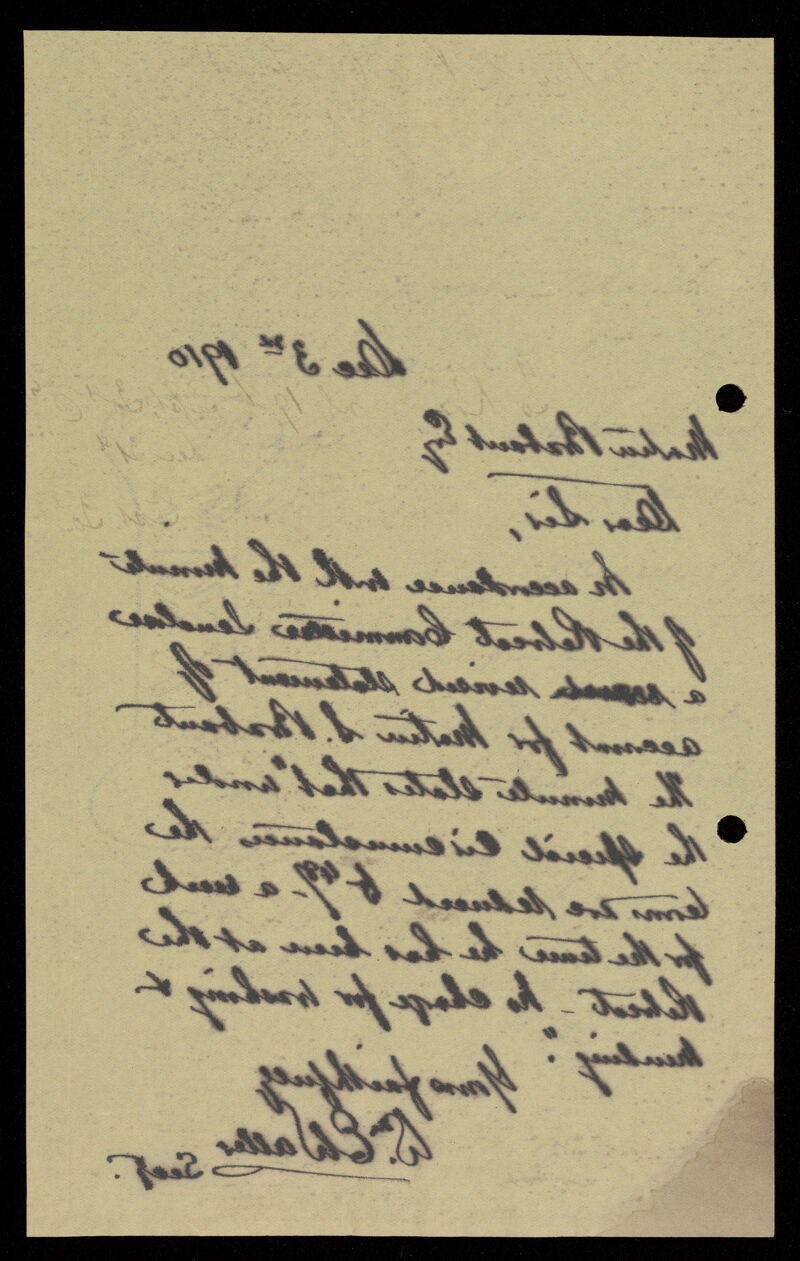 Dec 3rd 1910
Martin Brabant Esq
Dear Sir,
In accordance with the minute
of the Retreat Committee I enclose
a revised statement of
account for Martin S. Brabant
The minute states that "under
the special circumstances the
terms are reduced to 42/- a week
for the time he has been at the
Retreat - no charge for washing &
mending".
Yours faithfully
Wm. E. Waller
Secy.